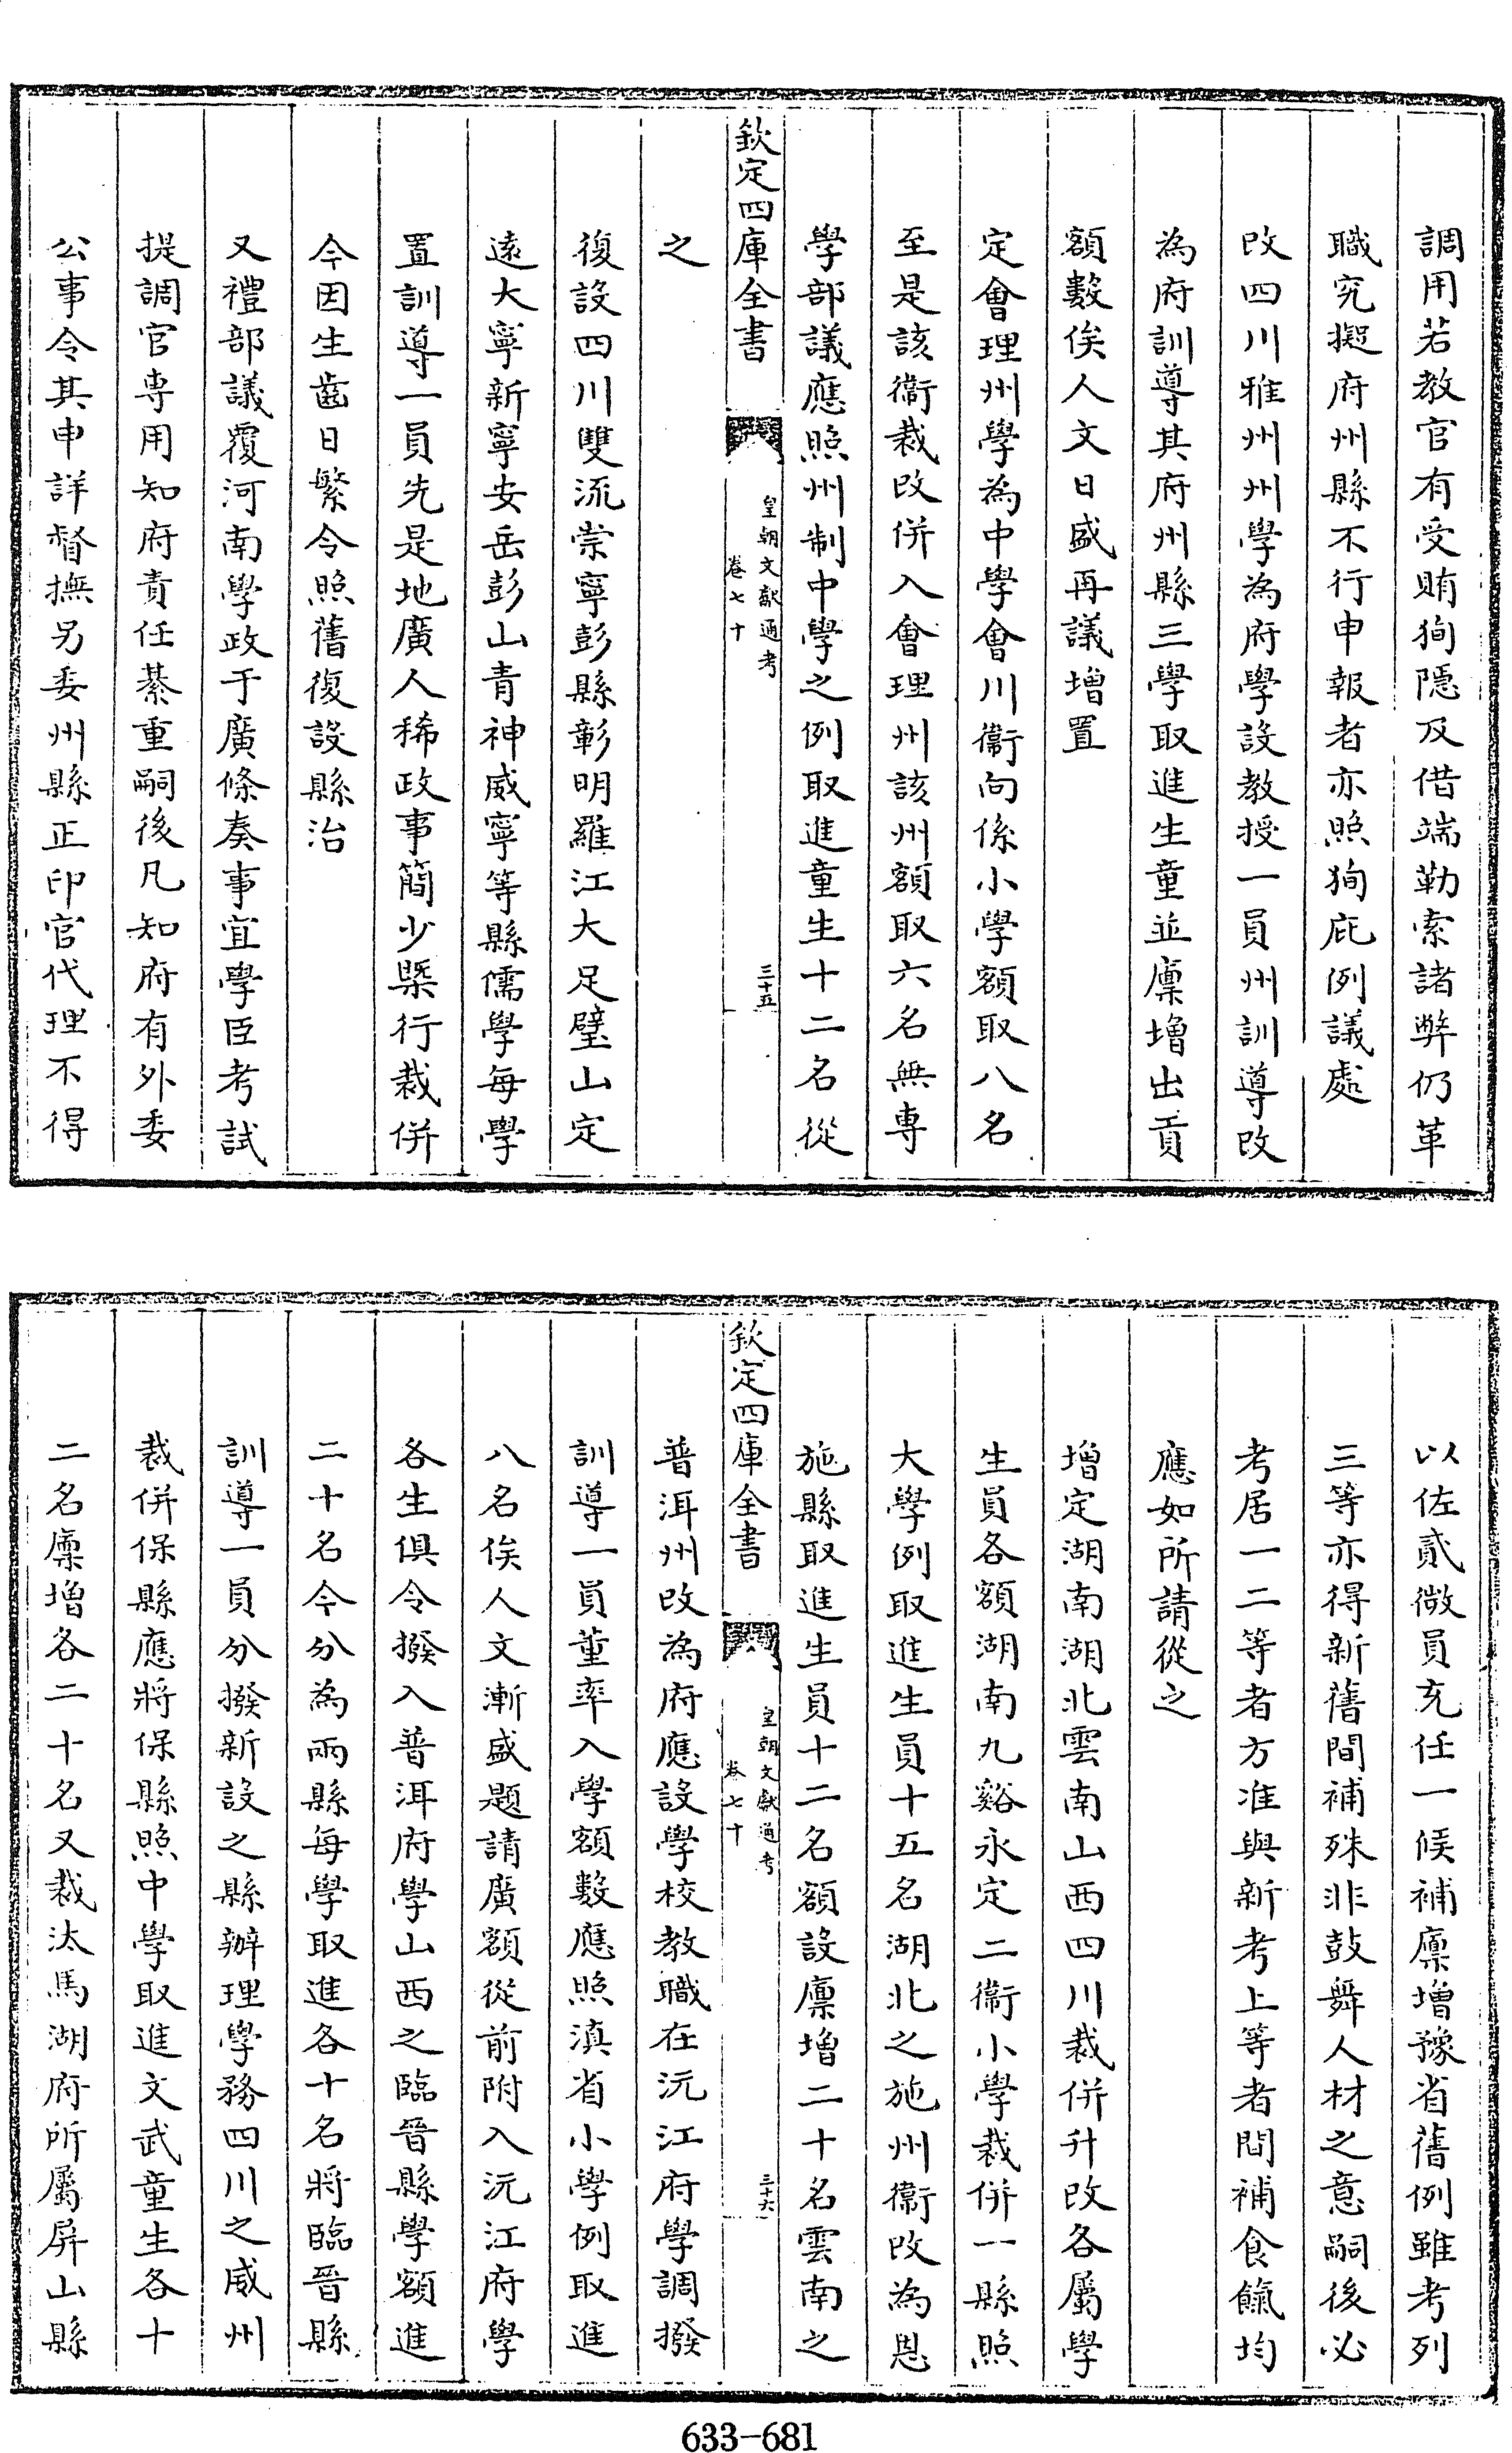 調用若教官有受賄狥隱及借端勒索諸弊仍革
職究擬府州縣不行申報者亦照狥庇例議處
改四川雅州州學為府學設教授一員州訓導改
為府訓導其府州縣三學取進生童並廩增出貢
額數俟人文日盛再議增置
定會理州學為中學會川衞向係小學額取八名
至是該衞裁改併入會理州該州額取六名無專
學部議應照州制中學之例取進童生十二名從
欽定四庫全書
皇朝文獻通考
卷七十
三十五
之
復設四川雙流崇寧彭縣彰明羅江大足璧山定
遠大寧新寧安岳彭山青神威寧等縣儒學每學
置訓導一員先是地廣人稀政事簡少槩行裁併
今因生齒日繁令照舊復設縣治
又禮部議覆河南學政于廣條奏事宜學臣考試
提調官專用知府責任綦重嗣後凡知府有外委
公事令其申詳督撫另委州縣正印官代理不得
以佐貳微員充任一候補廩增豫省舊例雖考列
三等亦得新舊間補殊非鼓舞人材之意嗣後必
考居一二等者方准與新考上等者間補食餼均
應如所請從之
增定湖南湖北雲南山西四川裁併升改各屬學
生員各額湖南九谿永定二衞小學裁併一縣照
大學例取進生員十五名湖北之施州衞改為恩
施縣取進生員十二名額設廩增二十名雲南之
欽定四庫全書
皇朝文獻通考
卷七十
三十六
普洱州改為府應設學校教職在沅江府學調撥
訓導一員董率入學額數應照滇省小學例取進
八名俟人文漸盛題請廣額從前附入沅江府學
各生俱令撥入普洱府學山西之臨晉縣學額進
二十名今分為兩縣每學取進各十名將臨晉縣
訓導一員分撥新設之縣辦理學務四川之威州
裁併保縣應將保縣照中學取進文武童生各十
二名廩增各二十名又裁汰馬湖府所屬屏山縣
633-681